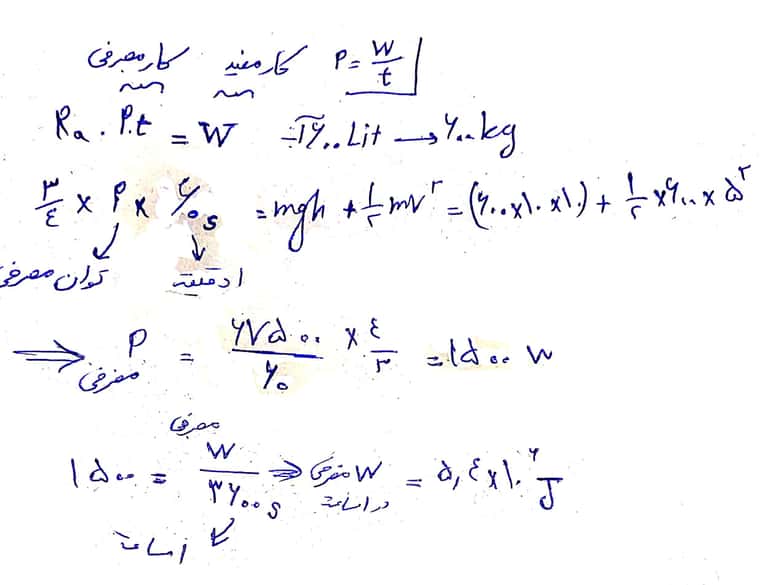 کار مصرفی کار مفید P = W/t
Ra . P.t = W ۶۰۰ Lit → ۶۰۰ kg
۳/٤ × P × ۶۰s = mgh + ۱/۲ mv^۲ = (۶۰۰×۱۰×۱۰) + ۱/۲ ×۶۰۰× ۵^۲
توان مصرفی ۱ دقیقه
⇒ P مصرفی = ۶۷۵۰۰/۶۰ × ٤/۳ = ۱۵۰۰ W
۱۵۰۰ = W مصرفی/۳۶۰۰s ⇒ W مصرفی در ۱ ساعت = ۵,٤×۱۰^۶ J
۱ ساعت